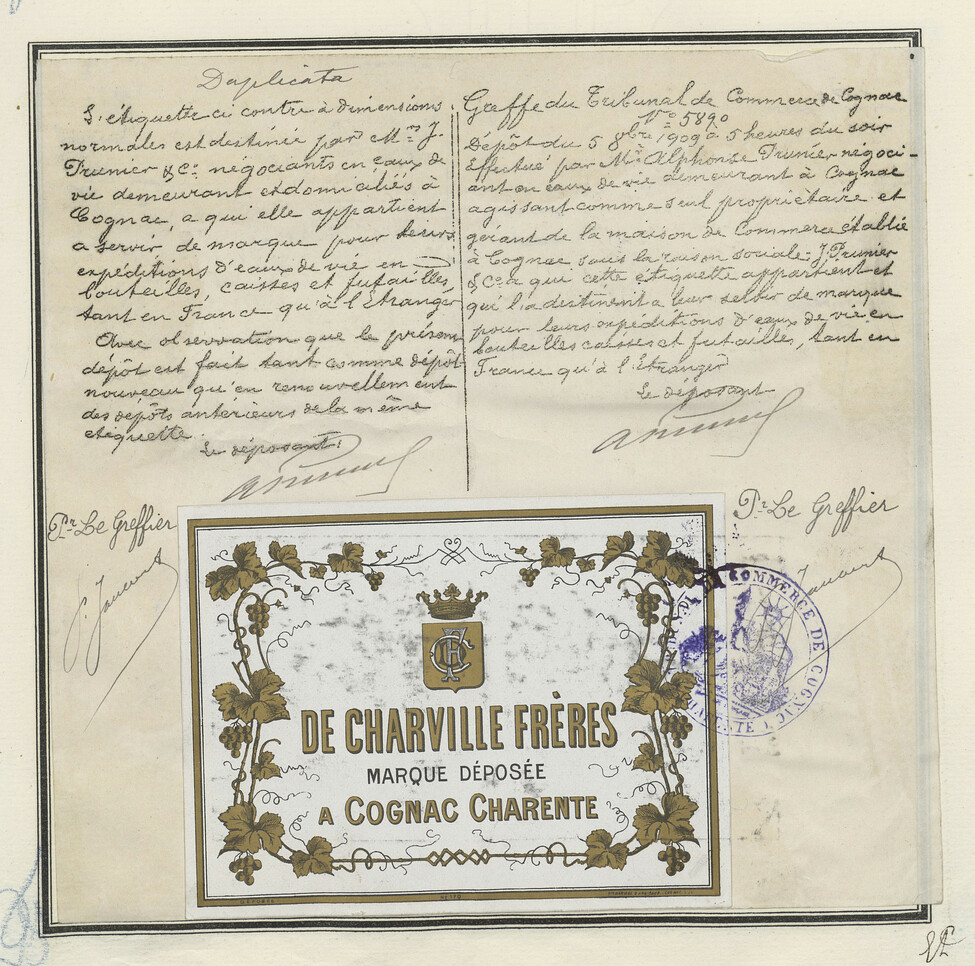 Duplicata
L'étiquette ci contre à dimensions
normales est destinée par M.rs J.
Prunier & Cº. négociants en eaux de
vie demeurant et domiciliés à
Cognac, a qui elle appartient
a servir de marque pour leurs
expéditions d'eaux de vie en
bouteilles, caisses et futailles,
tant en France qu'à l'Etranger
Avec observation que le présent
dépôt est fait tant comme dépôt
nouveau qu'en renouvellement
des dépôts antérieurs de la même
etiquette.
Le déposant:
Pr. Le Greffier
Greffe du Tribunal de Commerce de Cognac
Nº 5890
Dépôt du 5 8bre 1909 à 5 heures du soir
Effectué par Mr. Alphonse Prunier négoci-
ant en eaux de vie demeurant à Cognac
agissant comme seul propriétaire et
gérant de la maison de Commerce établie
à Cognac sous la raison sociale J. Prunier
& Cº. a qui cette étiquette appartient et
qui l'a destinent a leur servir de marque
pour leurs expéditions d'eaux de vie en
bouteilles caisses et futailles, tant en
France qu'à l'Etranger
Le déposant
Pr. Le Greffier
DE CHARVILLE FRÈRES
MARQUE DÉPOSÉE
A COGNAC CHARENTE
COMMERCE DE COGNAC